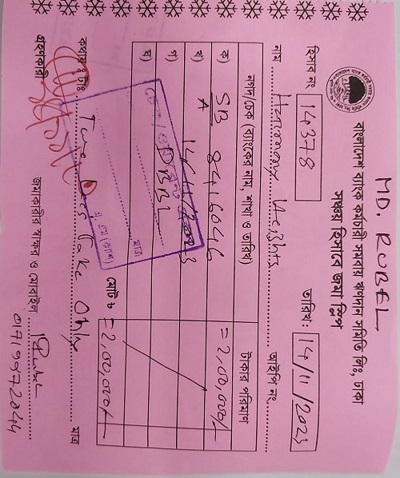 MD. RUBEL
বাংলাদেশ ব্যাংক কর্মচারী সমবায় ঋণদান সমিতি লিঃ, ঢাকা
সঞ্চয় হিসাবে জমা স্লিপ
হিসাব নং 14378 তারিখ: 14/11/2023
নাম Harmony আইপি নং
নগদ/চেক (ব্যাংকের নাম, শাখা ও তারিখ) টাকার পরিমাণ
ক) SB 8416046 =2,00,000/-
খ) A
গ) DBBL
ঘ)
মোট ৳ =2,00,000/-
কথায়ঃ টাঃ Two Lacs Take Only মাত্র
গ্রহণকারী জমাকারীর স্বাক্ষর ও মোবাইল Rubel
01719972044